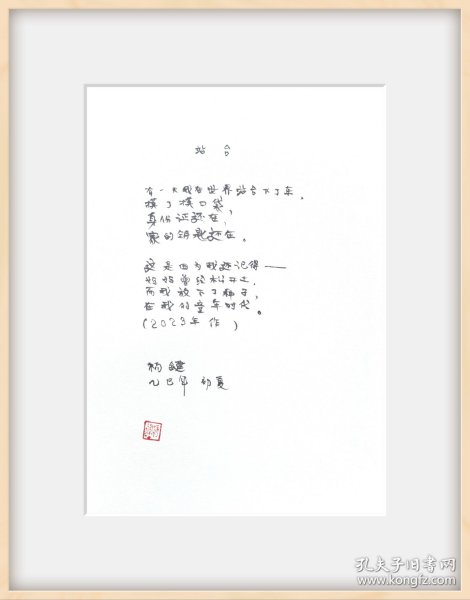 站台
有一天我在世界站台下了车，
摸了摸口袋，
身份证还在，
家的钥匙还在。
这是因为我还记得——
妈妈曾给松开土，
而我放下了种子，
在我的童年时代。
(2023年作)
杨键
乙巳年 初夏
孔夫子旧书网
www.kongfz.com